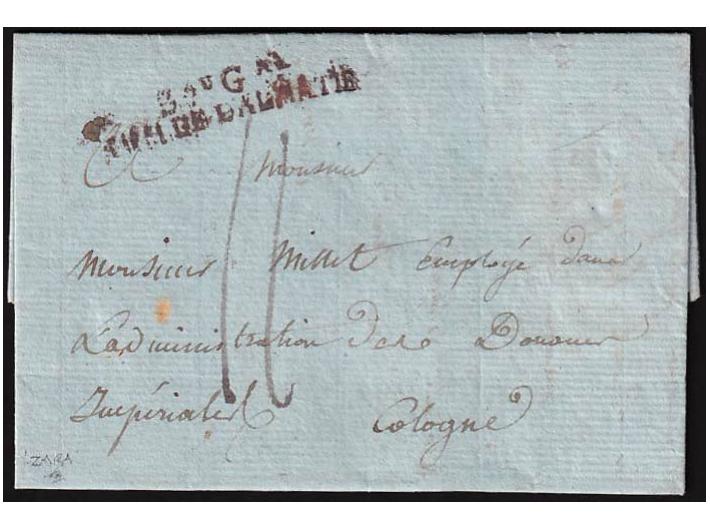 Bau G al
ARM. DE DALMATIE
A Monsieur
Monsieur Millet Employé dans
L'administration des Douanes
Impériales
Cologne
ZARA